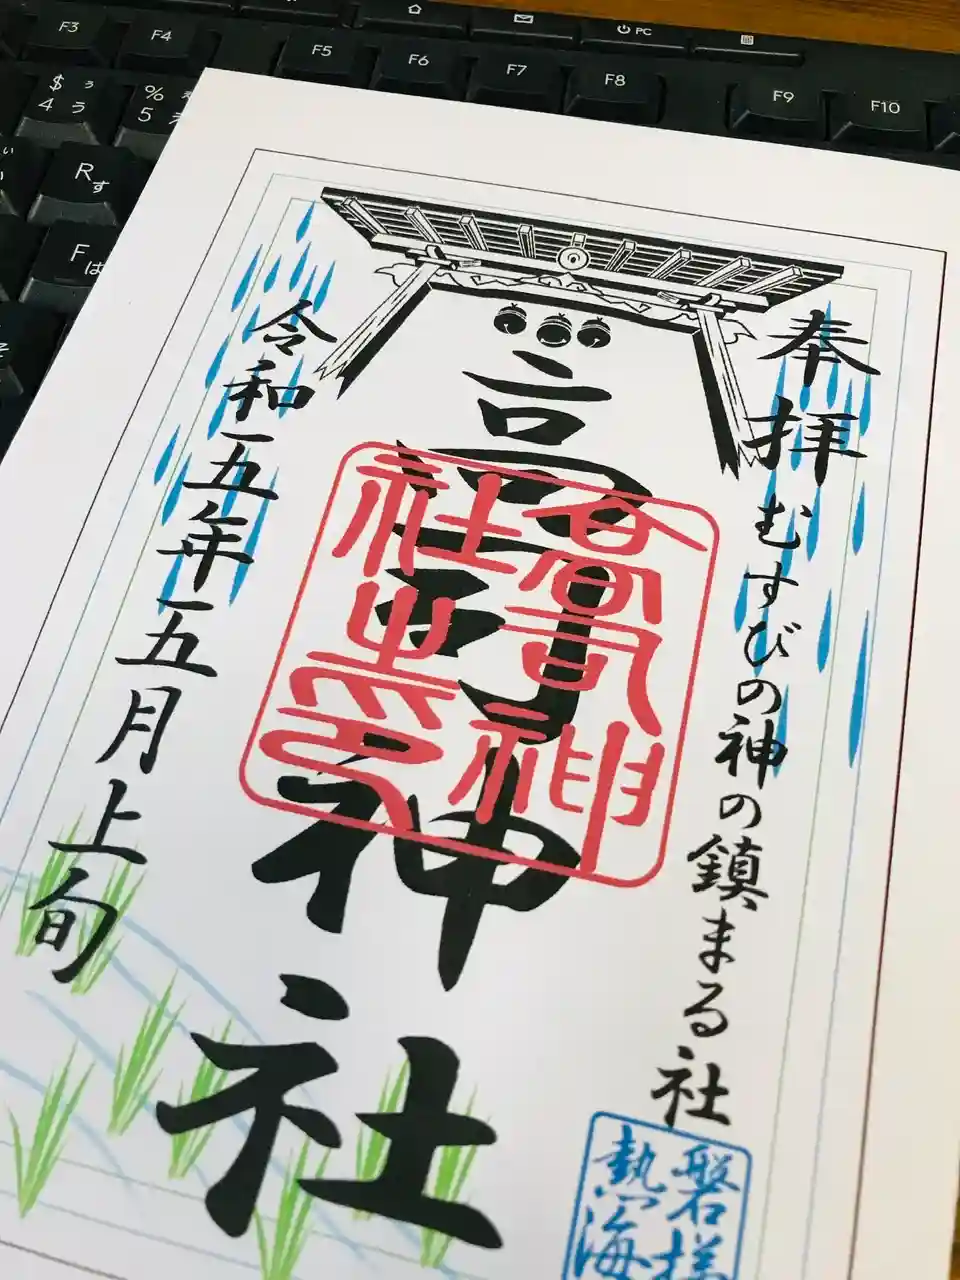 F3 F4 F5 F6 F7 F8 F9 F10
PC
$ 4 ぅ う
% 5 え
R す
F は
い
そ
奉拝
むすびの神の鎮まる社
高司神社
高司神
社之印
令和五年五月上旬
磐梯
熱海